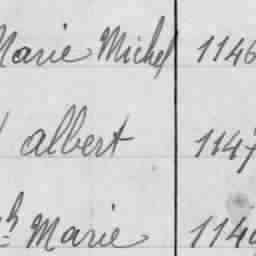 Marie Michel 1146
albert 1147
Marie 114